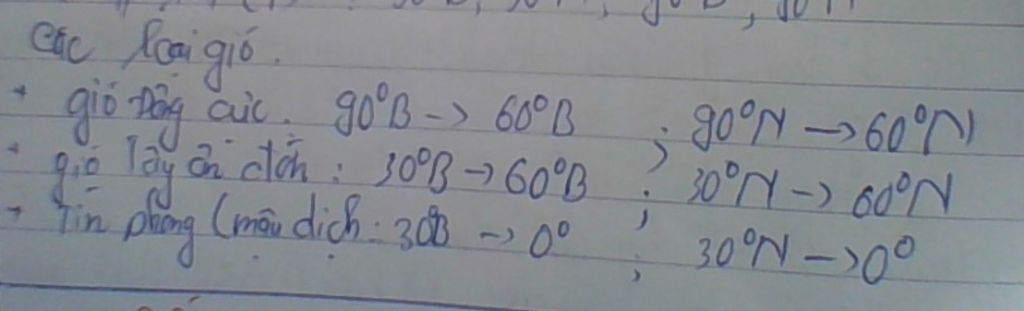 Các loại gió.
+ gió Đông cực. 90°B -> 60°B ; 90°N -> 60°N
+ gió Tây ôn đới : 30°B -> 60°B ; 30°N -> 60°N
+ Tín phong (mậu dịch : 30°B -> 0° ; 30°N -> 0°